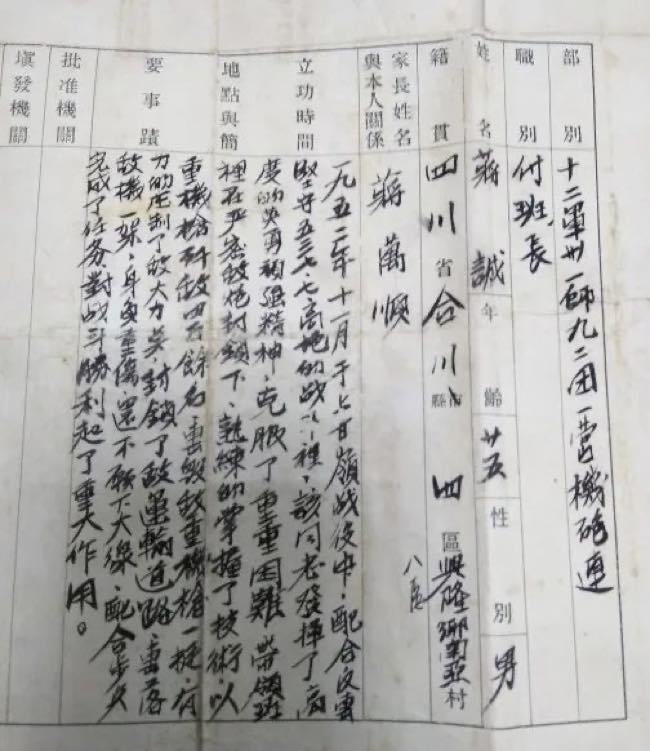 部別 十二軍卅一師九二团一营機砲連
職別 付班長
姓名 蔣誠 年齡 廿五 性別 男
籍貫 四川省合川縣市四區興隆鄉南亚村
八区
家長姓名與本人關係 蔣萬順
立功時間地點與簡要事蹟
一九五二年十一月于上甘嶺战役中,配合反击
堅守五三七·七高地的战斗裡,該同志發揮了高
度的英勇頑强精神,克服了重重困難,带領班
裡在严密敌炮封鎖下,熟練的掌握了技術,以
重機枪歼敌四百餘名,击毁敌重機槍一挺,有
力的压制了敌火力点,封鎖了敌運輸道路,击落
敌機一架,身负重傷,還不願下火線,配合步兵
完成了任务,對战斗勝利起了重大作用。
批准機關
填發機關